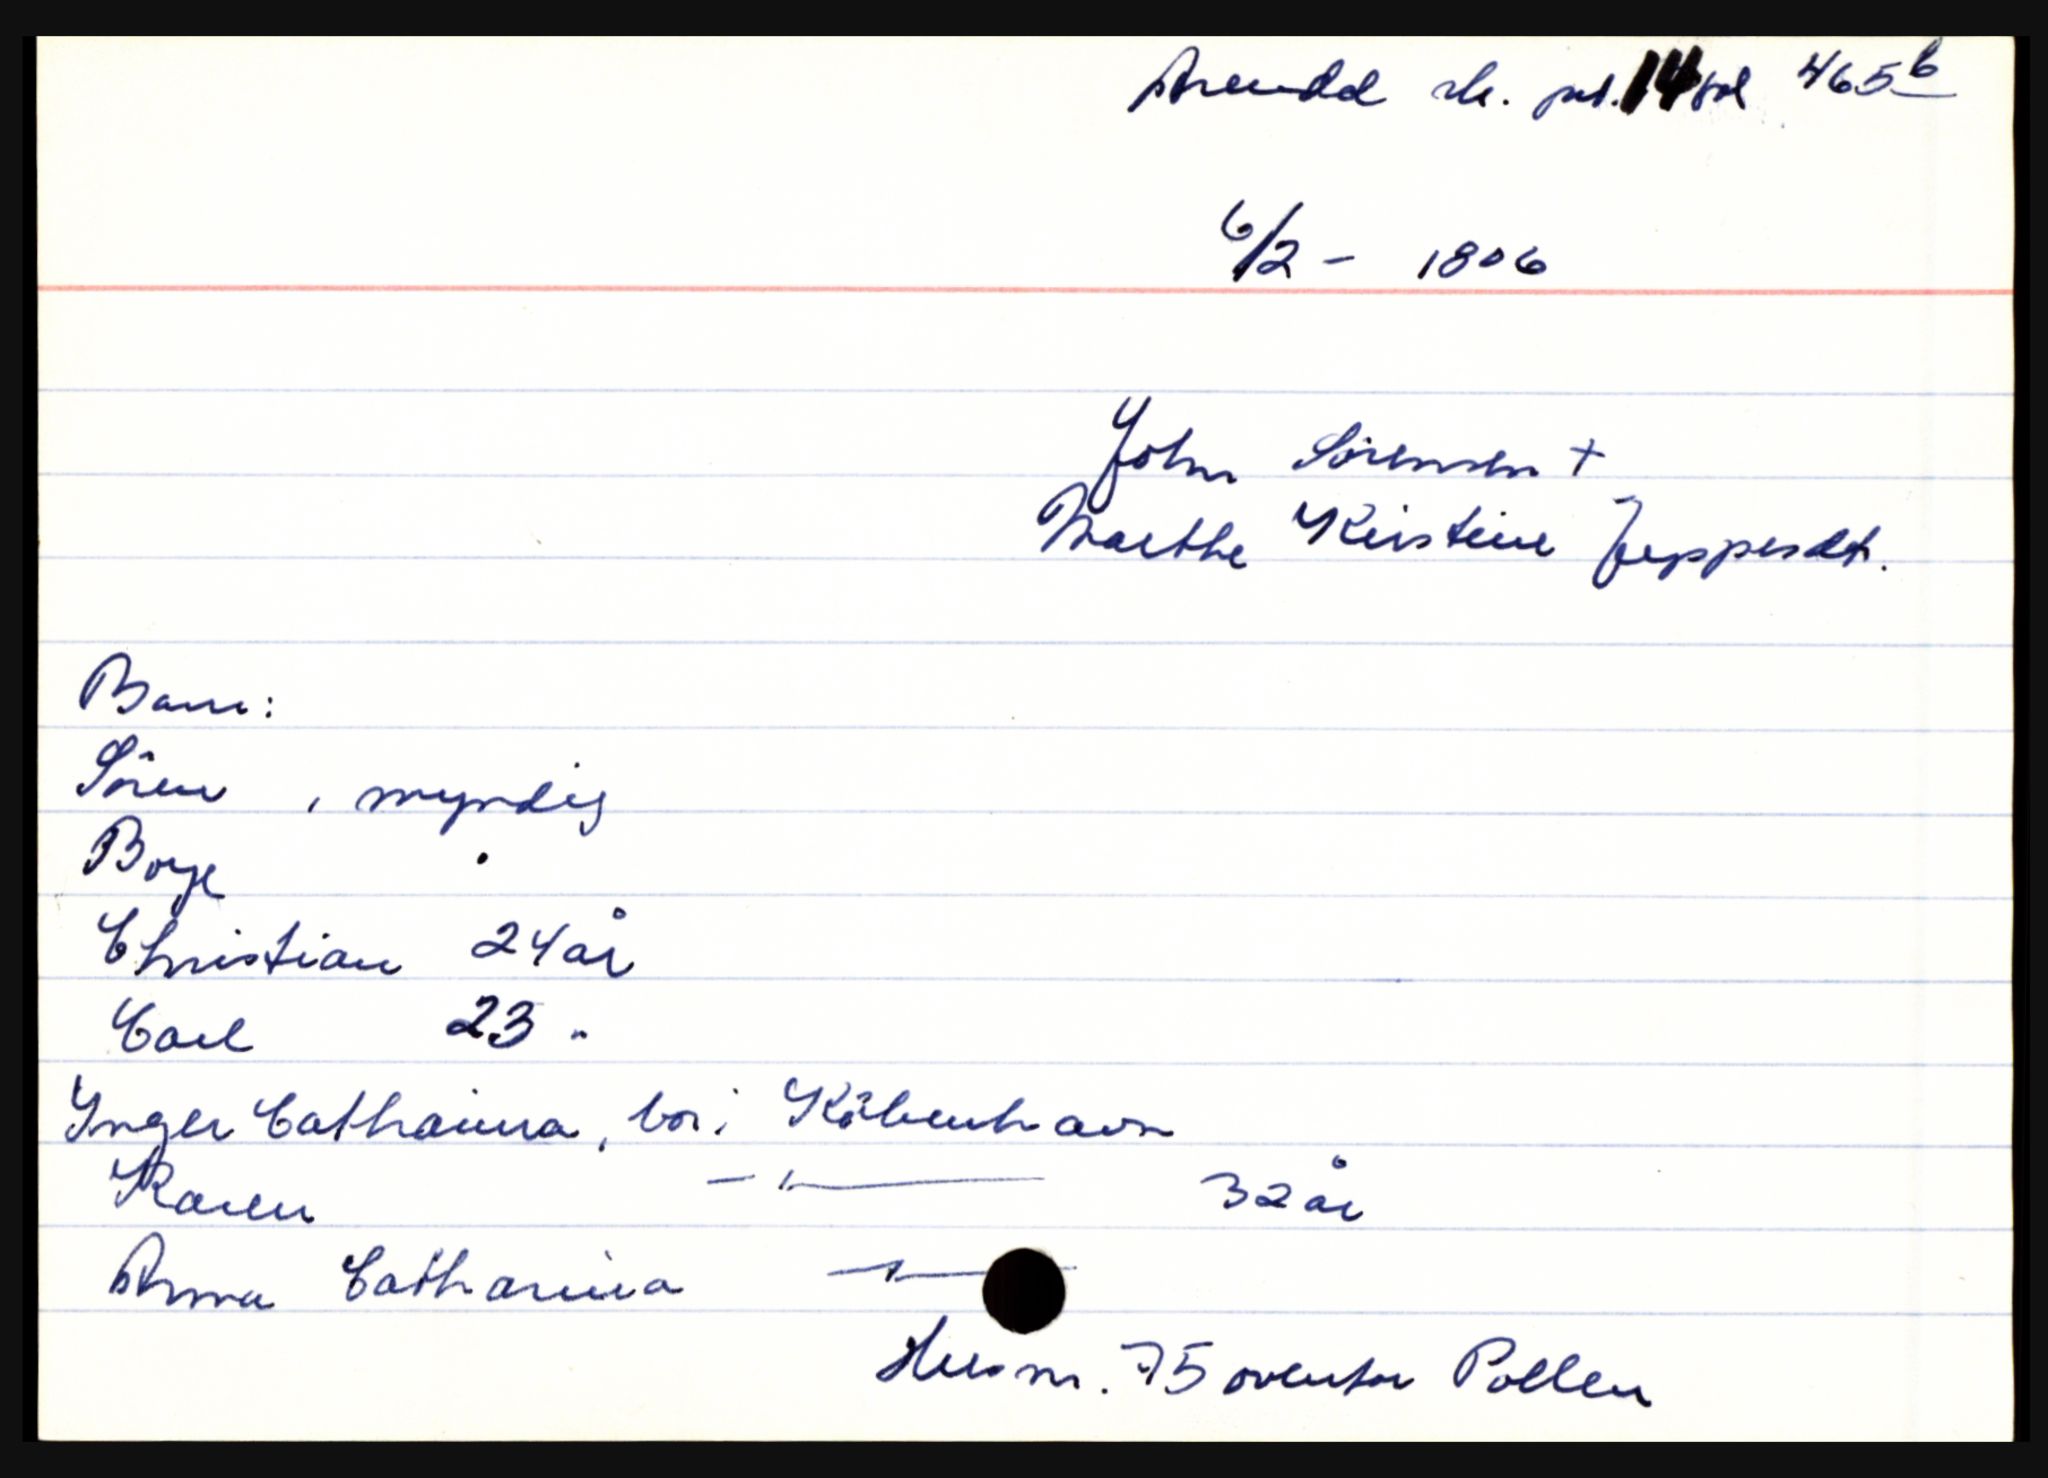 Arendal sk. prt. 14 fol 465b
6/2 - 1806
John Sörensen +
Marthe Kirstine Jeppesdt.
Barn:
Sören , myndig
Borge "
Christian 24 år
Carl 23 "
Inger Catharina, bor i Köbenhavn
Karen - " - 32 år
Anna Catharina - " -
Hus nr. 75 ovenfor Pollen